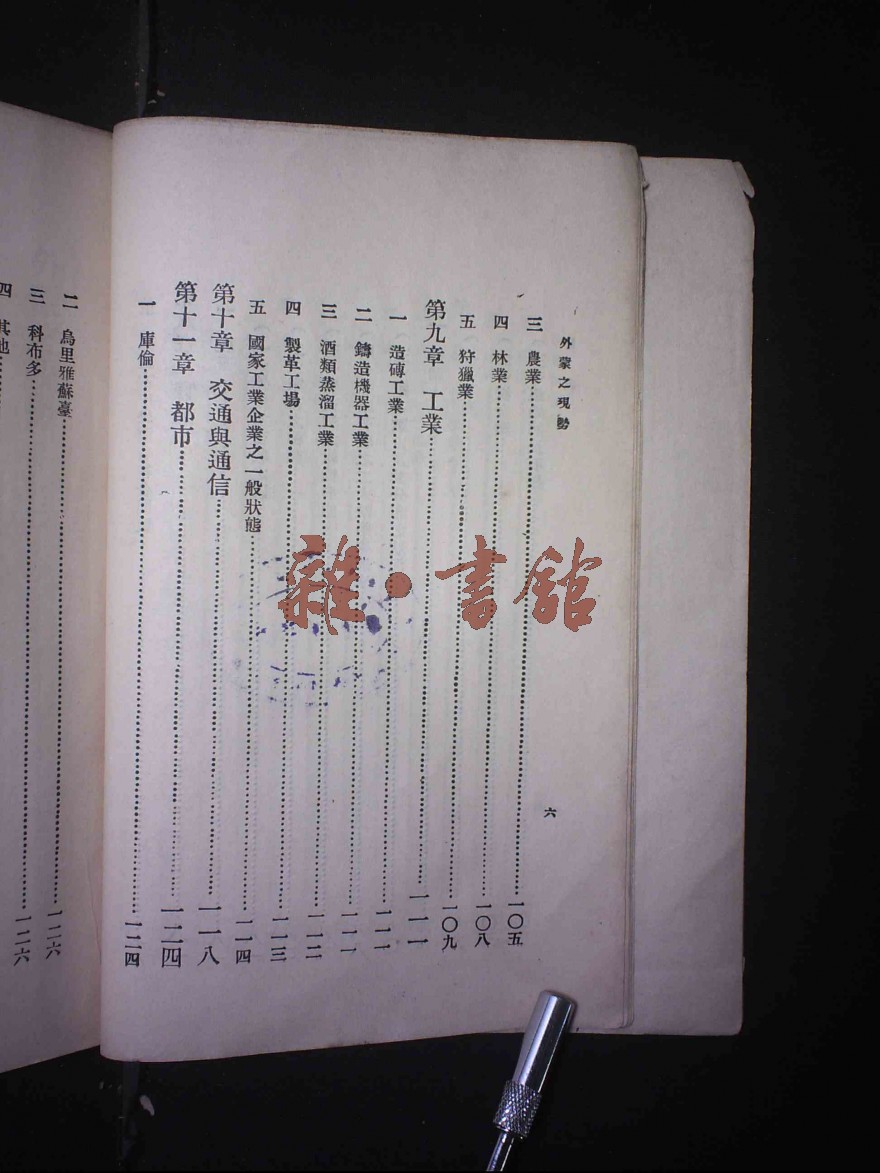 外蒙之現勢
六
三 農業 一〇五
四 林業 一〇八
五 狩獵業 一〇九
第九章 工業 一一一
一 造磚工業 一一一
二 鑄造機器工業 一一一
三 酒類蒸溜工業 一一二
四 製革工場 一一三
五 國家工業企業之一般狀態 一一四
第十章 交通與通信 一一八
第十一章 都市 一二四
一 庫倫 一二四
二 烏里雅蘇臺 一二六
三 科布多 一二六
四 其他
雜·書館